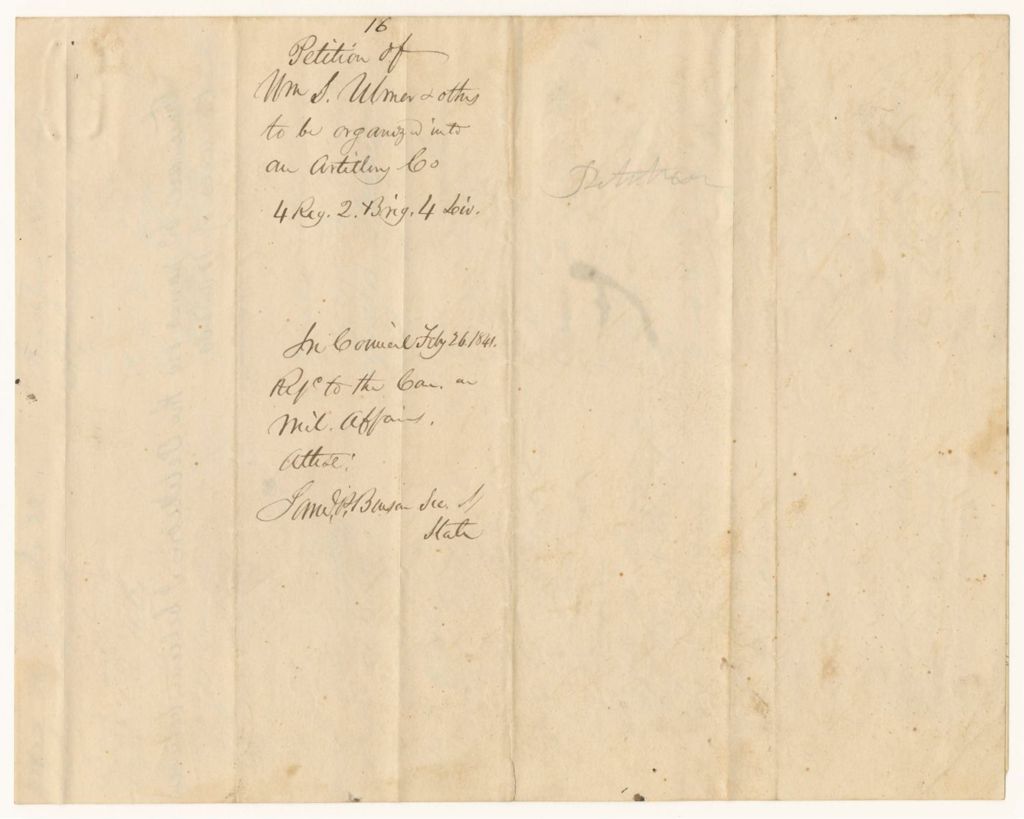 16
Petition of
Wm S. Ulmer & others
to be organized into
an Artillery Co
4 Reg. 2. Brig. 4 Div.
In Council Feby 26. 1841.
Refd to the Com. on
Mil. Affairs.
Attest:
Saml P. Benson Sec. of
State